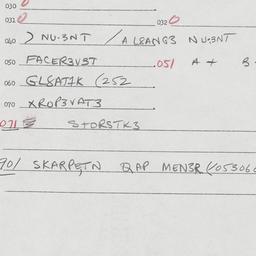 030 0
031 0 032 0
040 ) NU.3NT / A L8ANG3 NU.3NT
050 FACER3V5T .051 A +
060 GL8AT1K (252
070 XROP3VAT3
071 STORSTK3
901 SKARPETN QAP MEN3R (/05306